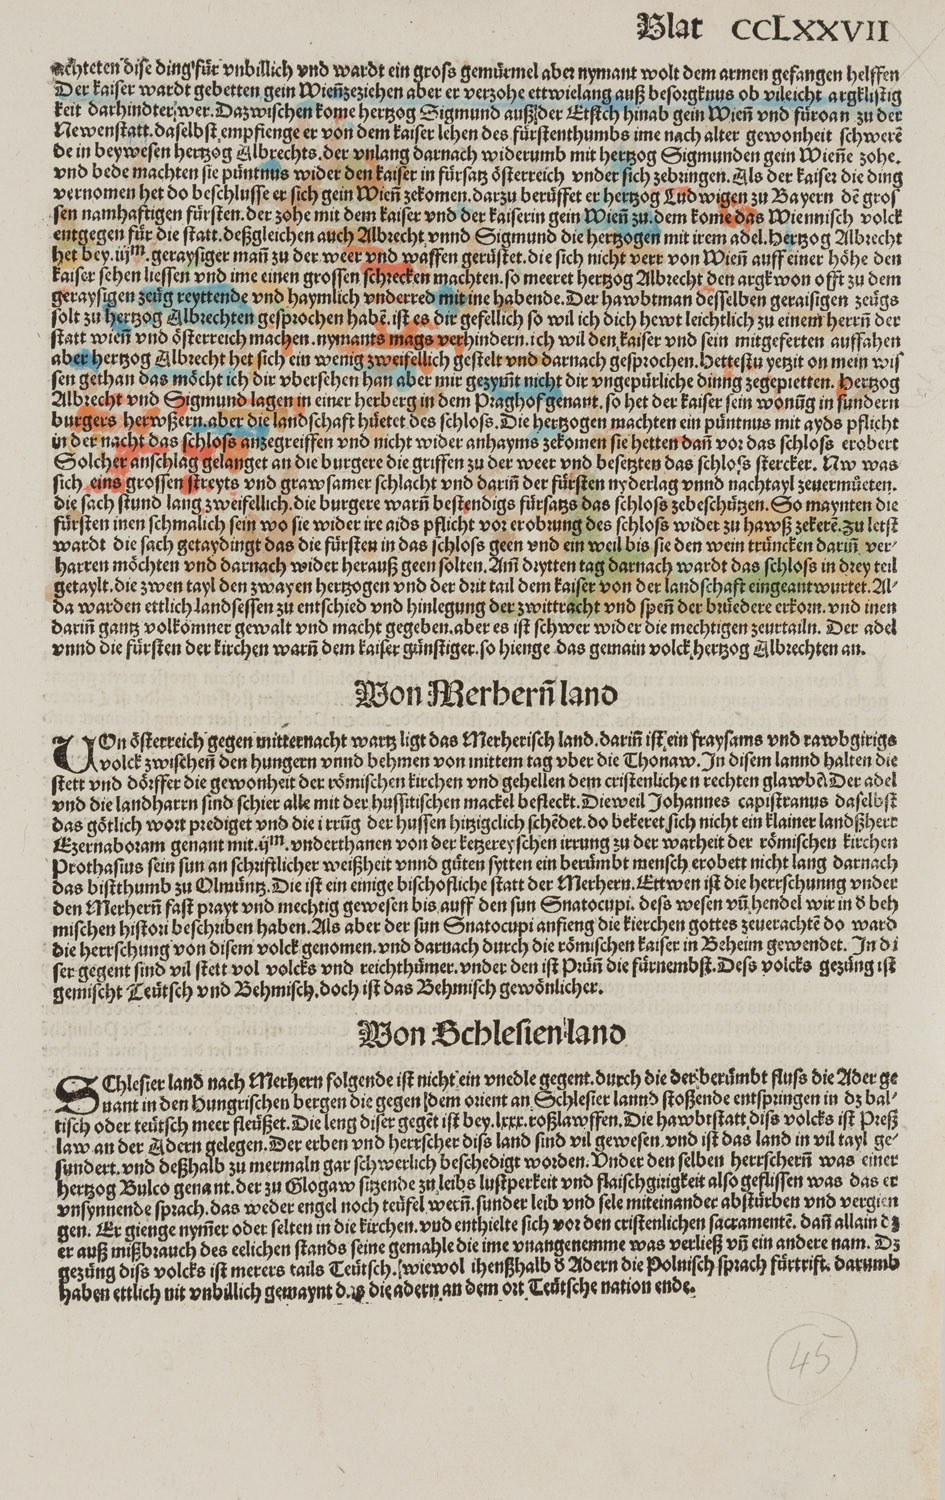 Blat CCLXXVII
achteten dise ding für vnbillich vnd wardt ein gross gemürmel aber nymant wolt dem armen gefangen helffen
Der kaiser wardt gebetten gein Wieñzeziehen aber er verzohe ettwielang auß besorgknus ob vileicht argklistig
keit darhindter wer. Dazwischen kome hertzog Sigmund auß der Etstch hinab gein Wieñ vnd füroan zu der
Newenstatt. daselbst empfienge er von dem kaiser lehen des fürstenthumbs ime nach alter gewonheit schwerē
de in beywesen hertzog Albrechts. der vnlang darnach widerumb mit hertzog Sigmunden gein Wieñe zohe.
vnd bede machten sie püntnus wider den kaiser in fürsatz österreich vnder sich zebringen. Als der kaiser die ding
vernomen het do beschlusse er sich gein Wieñ zekomen. darzu berüffet er hertzog Ludwigen zu Bayern dē gros
sen namhaftigen fürsten. der zohe mit dem kaiser vnd der kaiserin gein Wieñ zu. dem kome das Wiennisch volck
entgegen für die statt. deßgleichen auch Albrecht vnnd Sigmund die hertzogen mit irem adel. Hertzog Albrecht
het bey. iijᵐ. geraysiger mañ zu der weer vnd waffen gerüstet. die sich nicht verr von Wieñ auff einer höhe den
kaiser sehen liessen vnd ime einen grossen schrecken machten. so meeret hertzog Albrecht den argkwon offt zu dem
geraysigen zeüg reyttende vnd haymlich vnderred mit ine habende. Der hawbtman desselben geraisigen zeügs
solt zu hertzog Albrechten gesprochen habē. ist es dir gefellich so wil ich dich hewt leichtlich zu einem herrñ der
statt wieñ vnd österreich machen. nymants mags verhindern. ich wil den kaiser vnd sein mitgeferten auffahen
aber hertzog Albrecht het sich ein wenig zweifellich gestelt vnd darnach gesprochen. Hettestu yetzit on mein wis
sen gethan das möcht ich dir vbersehen han aber mir gezymt nicht dir vngepürliche dinng zegepietten. Hertzog
Albrecht vnd Sigmund lagen in einer herberg in dem Praghof genant. so het der kaiser sein wonūg in sundern
burgers hewßern. aber die landschaft hüetet des schloss. Die hertzogen machten ein püntnus mit ayds pflicht
in der nacht das schloss anzegreiffen vnd nicht wider anhayms zekomen sie hetten dañ vor das schloss erobert
Solcher anschlag gelanget an die burgere die griffen zu der weer vnd besetzten das schloss stercker. Nw was
sich eins grossen streyts vnd grawsamer schlacht vnd dariñ der fürsten nyderlag vnnd nachtayl zeuermüeten.
die sach stund lang zweifellich. die burgere warñ bestendigs fürsatzs das schloss zebeschützen. So maynten die
fürsten inen schmalich sein wo sie wider ire aids pflicht vor erobrung des schloss wider zu hawß zekerē. Zu letst
wardt die sach getaydingt das die fürsten in das schloss geen vnd ein weil bis sie den wein trüncken dariñ ver-
harren möchten vnd darnach wider herauß geen solten. Am drytten tag darnach wardt das schloss in drey teil
getaylt. die zwen tayl den zwayen hertzogen vnd der drit tail dem kaiser von der landschaft eingeantwurtet. Al-
da warden ettlich landsessen zu entschied vnd hinlegung der zwittracht vnd speñ der brüedere erkorn. vnd inen
dariñ gantz volkomner gewalt vnd macht gegeben. aber es ist schwer wider die mechtigen zeurtailn. Der adel
vnnd die fürsten der kirchen warñ dem kaiser günstiger. so hienge das gemain volck hertzog Albrechten an.
Von Merherñ land
VOn österreich gegen mitternacht wartz ligt das Merherisch land. dariñ ist ein fraysams vnd rawbgirigs
volck zwischeñ den hungern vnnd behmen von mittem tag vber die Thonaw. In disem lannd halten die
stett vnd dörffer die gewonheit der römischen kirchen vnd gehellen dem cristenlichen rechten glawbē. Der adel
vnd die landharrn sind schier alle mit der hussitischen mackel befleckt. Dieweil Johannes capistranus daselbst
das götlich wort prediget vnd die irrūg der hussen hitzigclich schēdet. do bekeret sich nicht ein klainer landßherr
Ezernaboram genant mit. ijᵐ. vnderthanen von der ketzereyschen irrung zu der warheit der römischen kirchen
Prothasius sein sun an schriftlicher weißheit vnnd güten sytten ein berümbt mensch erobett nicht lang darnach
das bistthumb zu Olmüntz. Die ist ein einige bischofliche statt der Merhern. Ettwen ist die herrschunng vnder
den Merherñ fast prayt vnd mechtig gewesen bis auff den sun Snatocupi. dess wesen vñ hendel wir in d beh
mischen histori beschriben haben. Als aber der sun Snatocupi anfieng die kierchen gottes zeuerachtē do ward
die herrschung von disem volck genomen. vnd darnach durch die römischen kaiser in Beheim gewendet. In di
ser gegent sind vil stett vol volcks vnd reichthümer. vnder den ist Prüñ die fürnembst. Dess volcks gezüng ist
gemischt Teütsch vnd Behmisch. doch ist das Behmisch gewönlicher.
Von Schlesien land
SChlesier land nach Merhern folgende ist nicht ein vnedle gegent. durch die der berümbt fluss die Ader ge
nant in den Hungrischen bergen die gegen dem orient an Schlesier lannd stoßende entspringen in dz bal-
tisch oder teütsch meer fleüßet. Die leng diser gegēt ist bey. lxxx. roßlawffen. Die hawbtstatt diss volcks ist Preß
law an der Adern gelegen. Der erben vnd herrscher diss land sind vil gewesen. vnd ist das land in vil tayl ge-
sundert. vnd deßhalb zu mermaln gar schwerlich beschedigt worden. Vnder den selben herrscherñ was einer
hertzog Bulco genant. der zu Glogaw sitzende zu leibs lustperkeit vnd flaischgirigkeit also geflissen was das er
vnsynnende sprach. das weder engel noch teüfel werñ. sunder leib vnd sele miteinander abstürben vnd vergien
gen. Er gienge nymer oder selten in die kirchen. vnd enthielte sich vor den cristenlichen sacramentē. dañ allain dz
er auß mißbrauch des eelichen stands seine gemahle die ime vnangenemme was verließ vñ ein andere nam. Dz
gezüng diss volcks ist merers tails Teütsch. wiewol ihenßhalb d Adern die Polnisch sprach fürtrift. darumb
haben ettlich nit vnbillich gewaynt das die adern an dem ort Teütsche nation ende.
45